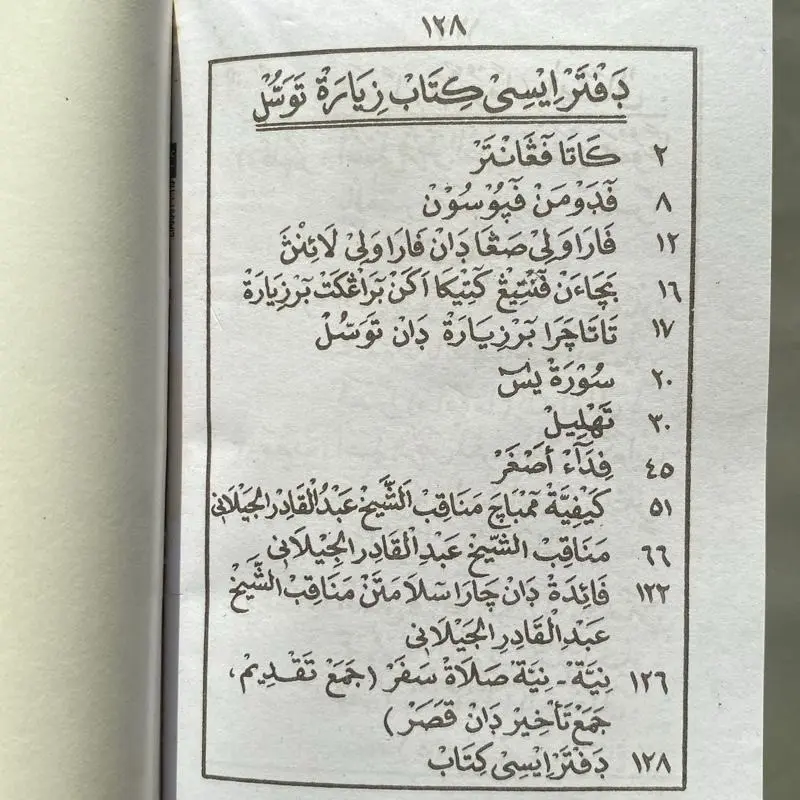 ١٢٨
دَفْتَرْ اِيْسِيْ كِتَابْ زِيَارَةْ تَوَسُّلْ
٢ كَاتَا فَڠَانْتَرْ
٨ فَدَوْمَنْ فَپُوْسُوْنْ
١٢ فَارَا وَلِيْ صَڠَا دَانْ فَارَا وَلِيْ لَائِنْڽَ
١٦ بَچَاءَنْ فَنْتِيْڠْ كَتِيْكَا اَكَنْ بَرَاڠْكَتْ بَرْزِيَارَةْ
١٧ تَاتَا چَرَا بَرْزِيَارَةْ دَانْ تَوَسُّلْ
٢٠ سُوْرَةْ يٰسٓ
٣٠ تَهْلِيْلْ
٤٥ فِدَآءْ أَصْغَرْ
٥١ كَيْفِيَّةْ مَمْبَاچَ مَنَاقِبْ الشَّيْخْ عَبْدُالْقَادِرْ الْجَيْلَانِى
٦٦ مَنَاقِبْ الشَّيْخْ عَبْدِالْقَادِرِ الْجَيْلَانِى
١٢٢ فَائِدَةْ دَانْ چَارَا سْلَامَتَنْ مَنَاقِبْ الشَّيْخْ
عَبْدِالْقَادِرِ الْجَيْلَانِى
١٢٦ نِيَّةْ - نِيَّةْ صَلَاةْ سَفَرْ (جَمَعْ تَقْدِيمْ،
جَمَعْ تَأْخِيرْ دَانْ قَصَرْ)
١٢٨ دَفْتَرْ اِيْسِيْ كِتَابْ